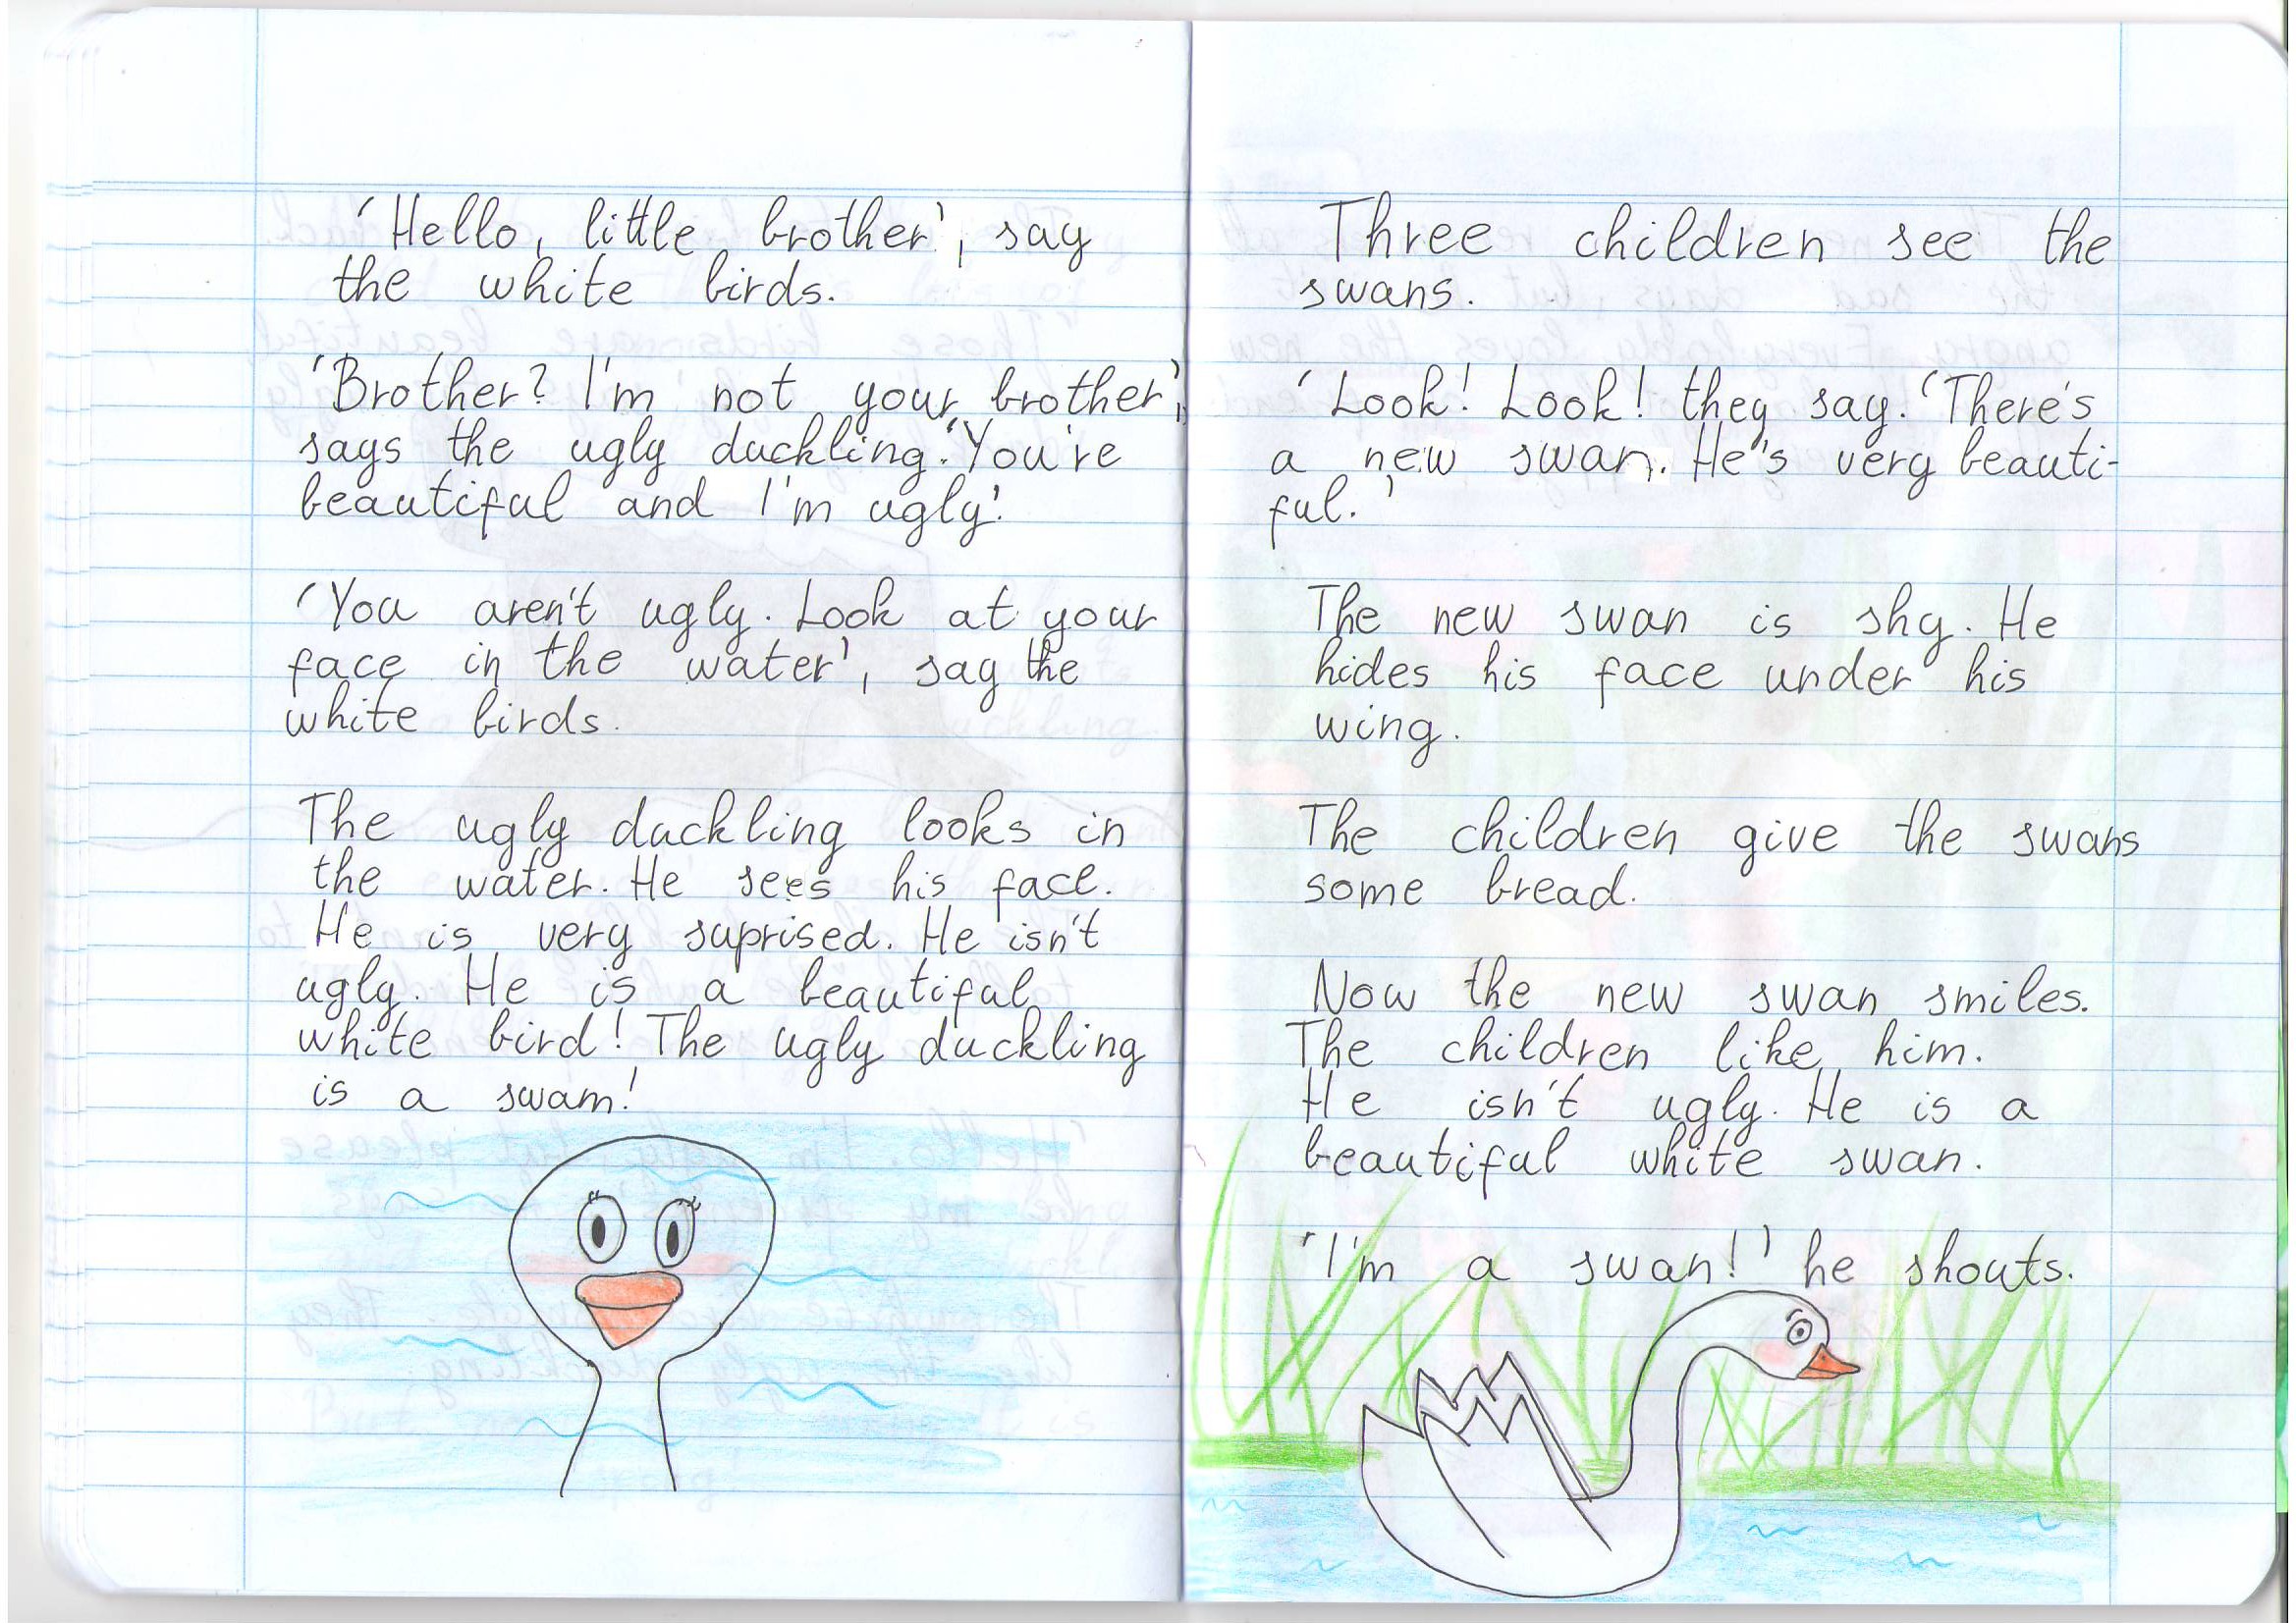 'Hello, little brother', say
the white birds.
'Brother? I'm not your brother',
says the ugly duckling. 'You're
beautiful and I'm ugly.'
'You aren't ugly. Look at your
face in the water', say the
white birds.
The ugly duckling looks in
the water. He sees his face.
He is very suprised. He isn't
ugly. He is a beautiful
white bird! The ugly duckling
is a swam!
Three children see the
swans.
'Look! Look! they say. 'There's
a new swan. He's very beauti-
ful.'
The new swan is shy. He
hides his face under his
wing.
The children give the swans
some bread.
Now the new swan smiles.
The children like him.
He isn't ugly. He is a
beautiful white swan.
'I'm a swan!' he shouts.